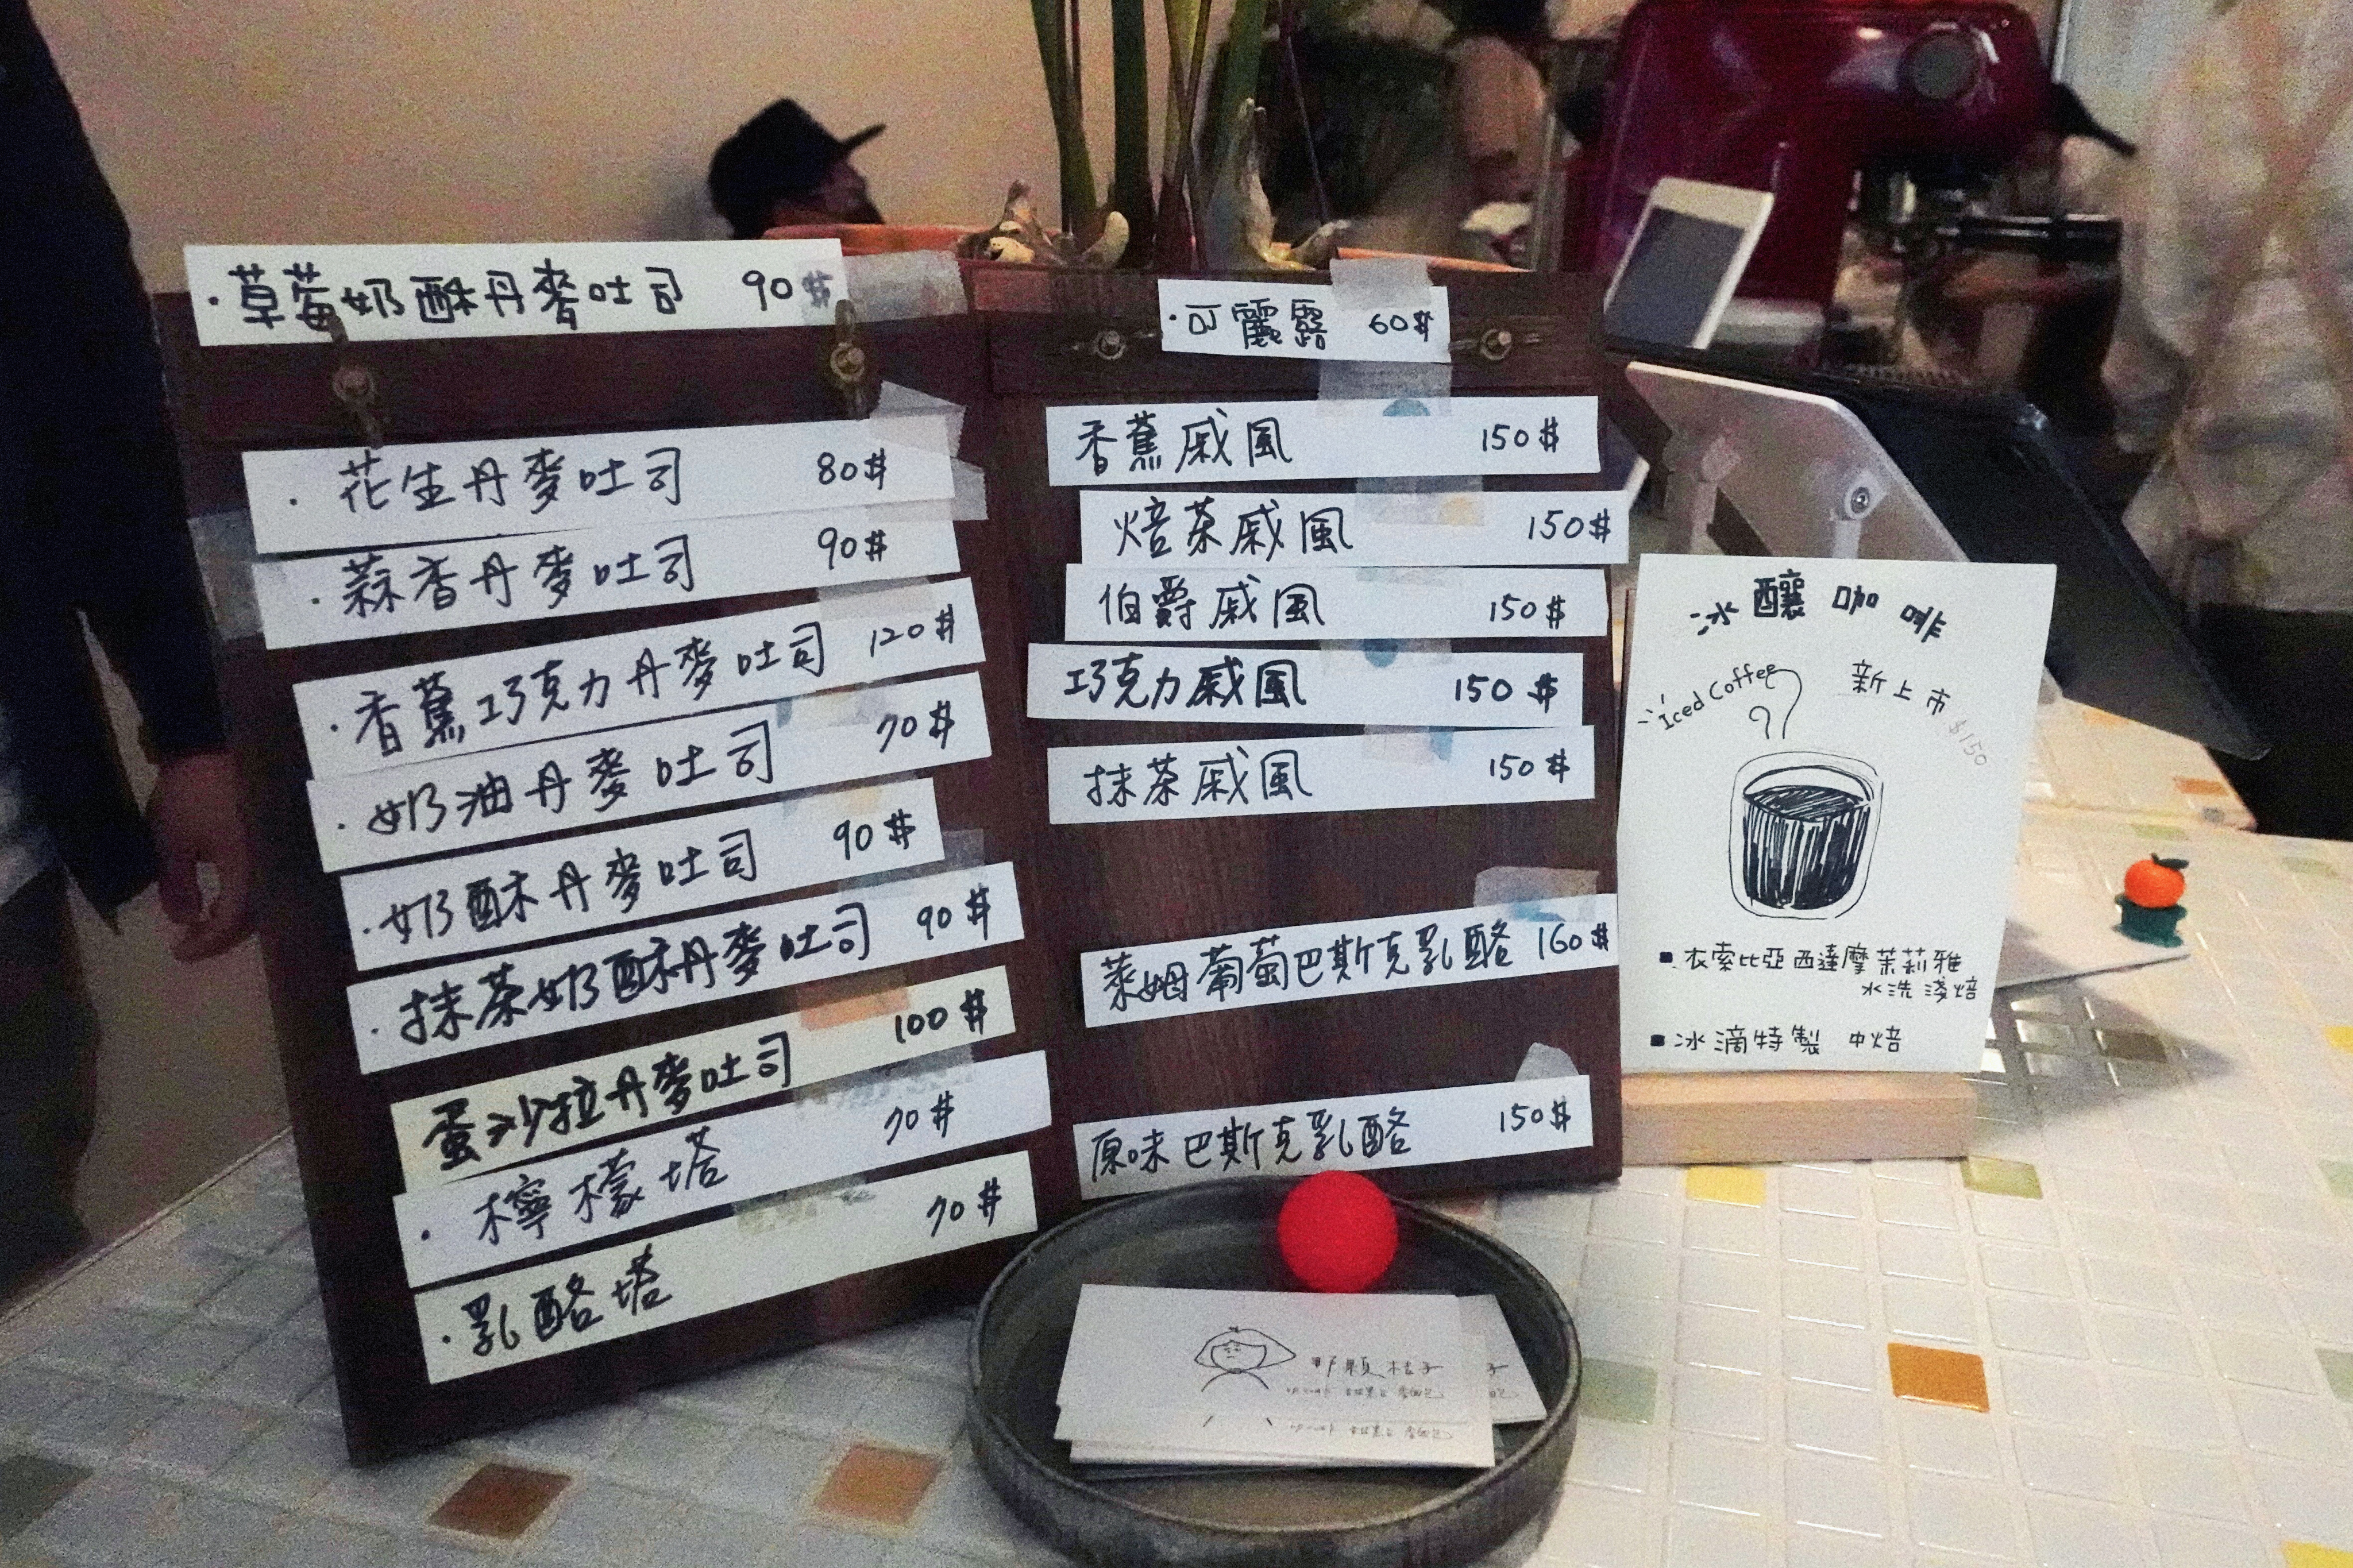 ·草莓奶酥丹麥吐司 90$
·花生丹麥吐司 80$
·蒜香丹麥吐司 90$
·香蕉巧克力丹麥吐司 120$
·奶油丹麥吐司 70$
·奶酥丹麥吐司 90$
·抹茶奶酥丹麥吐司 90$
蛋沙拉丹麥吐司 100$
·檸檬塔 70$
·乳酪塔 70$
·可麗露 60$
香蕉戚風 150$
焙茶戚風 150$
伯爵戚風 150$
巧克力戚風 150$
抹茶戚風 150$
萊姆葡萄巴斯克乳酪 160$
原味巴斯克乳酪 150$
冰釀咖啡
Iced Coffee 新上市 $150
▪衣索比亞西達摩茉莉雅
水洗淺焙
▪冰滴特製 中焙
野顆桔子